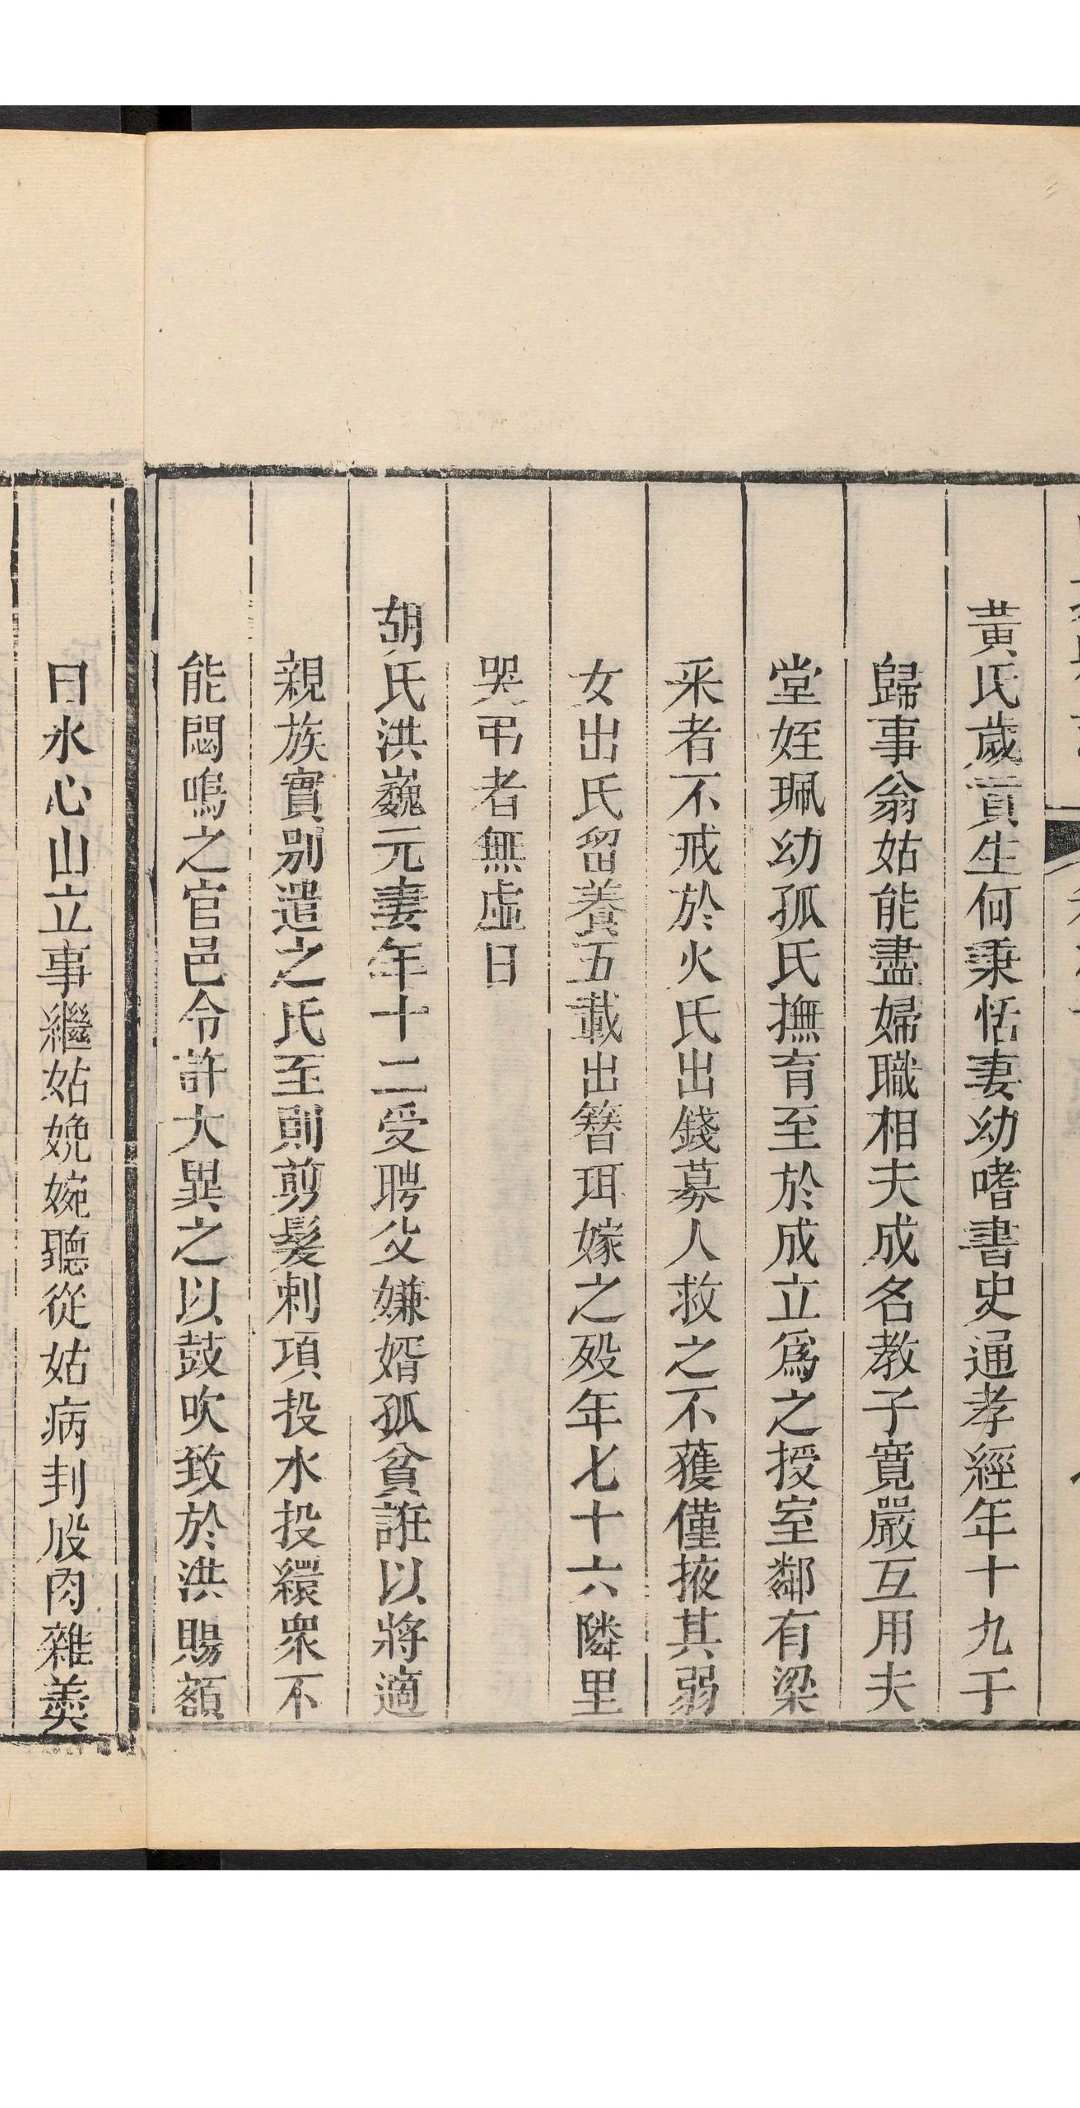 黃氏歲貢生何秉恬妻幼嗜書史通孝經年十九于
歸事翁姑能盡婦職相夫成名教子寬嚴互用夫
堂姪珮幼孤氏撫育至於成立爲之授室鄰有梁
釆者不戒於火氏出錢募人救之不獲僅掖其弱
女出氏留養五載出簪珥嫁之殁年七十六隣里
哭弔者無虛日
胡氏洪巍元妻年十二受聘父嫌婿孤貧誑以將適
親族實别遣之氏至則剪髮刺項投水投繯衆不
能悶鳴之官邑令許大異之以鼓吹致於洪賜額
曰氷心山立事繼姑婉婉聽從姑病刲股肉雜羮